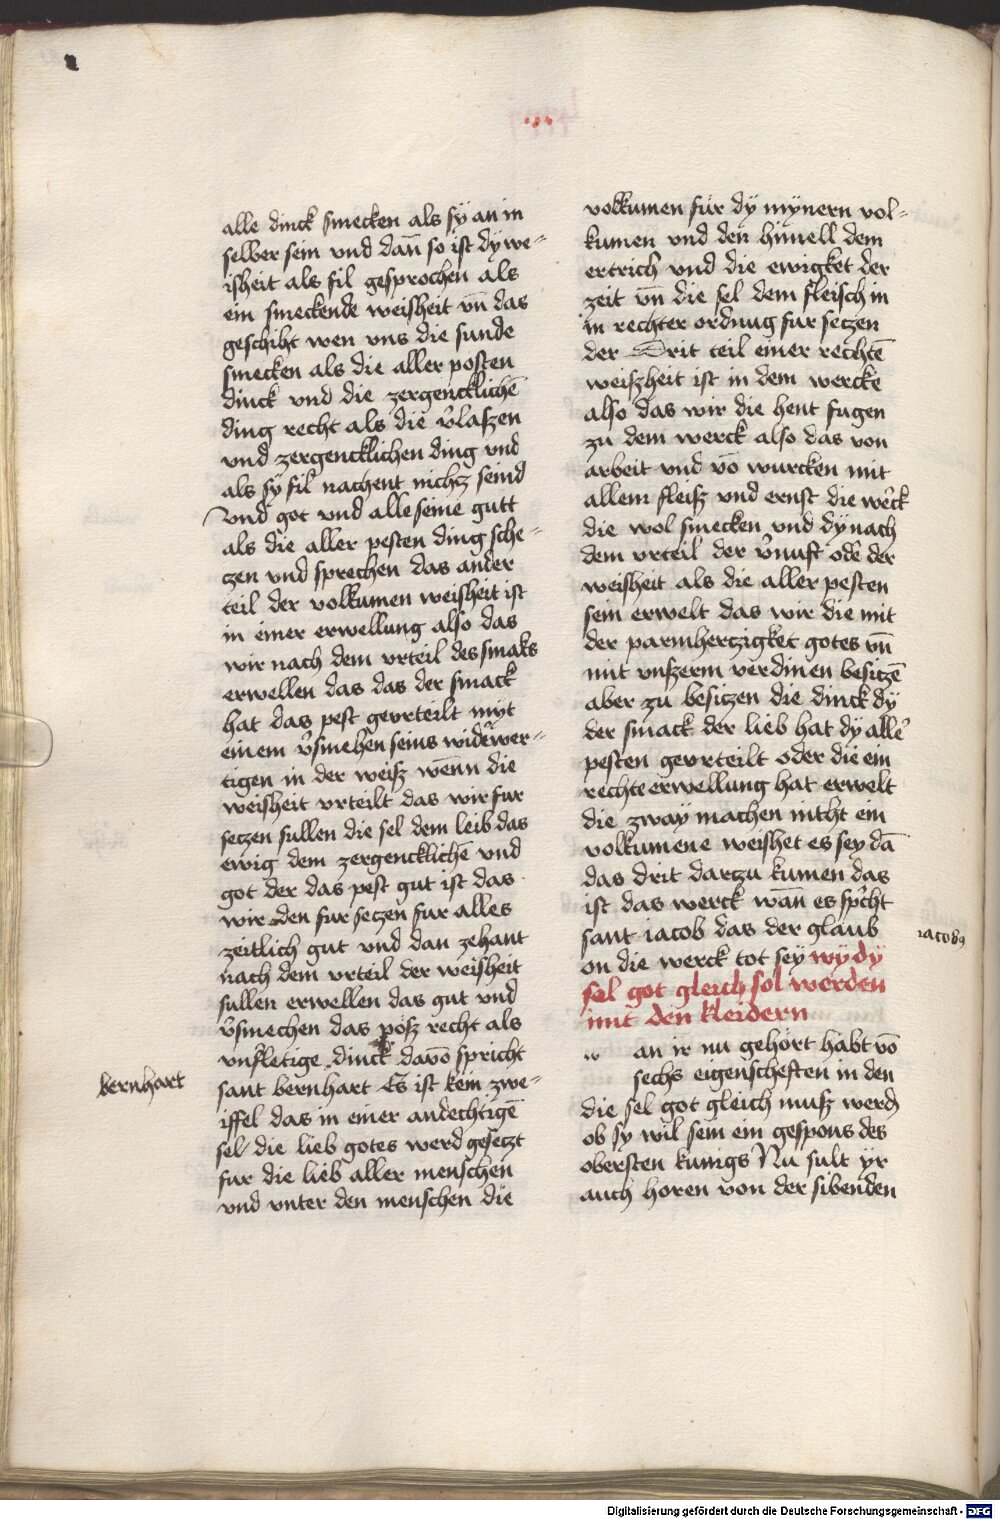 alle dinck smecken als sÿ an in
selber sein vnd dan̄ so ist dÿ we-
isheit als fil gesprochen als
ein smeckende weisheit vn̄ das
geschiht wen vns die sunde
smecken als die aller posten
dinck vnd die zergencklichē
ding recht als die v̉laszen
vnd zergencklichen ding vnd
als sÿ fil nachent nichcz seind
vnd got vnd alle seine gutt
als die aller pesten ding sche-
czen vnd sprechen das ander
teil der volkumen weisheit ist
in einer erwellung also das
wir nach dem vrteil des smaks
erwellen das das der smack
hat das pest gevrteilt mÿt
einem v̉smehen seins wid̉wer-
tigen in der weisz wēnn die
weisheit vrteilt das wir fur
seczen sullen die sel dem leib das
ewig dem zergencklichē vnd
got der das pest gut ist das
wir den fur seczen fur alles
zeitlich gut vnd dan zehant
nach dem vrteil der weisheit
sullen erwellen das gut vnd
v̉smechen das pösz recht als
vnfletige dinck davō spricht
bernhart
sant bernhart Es ist kein zwe-
iffel das in einer andechtigē
sel die lieb gotes werd gesetzt
fur die lieb aller menschen
vnd vnter den menschen die
volkumen für dÿ mÿnern vol-
kumen vnd den himell dem
ertrich vnd die ewigket der
zeit vn̄ die sel dem fleisch in
in rechter ordnug fur seczen
der Drit teil einer rechtē
weiszheit ist in dem wercke
also das wir die hent fugen
zu dem werck also das von
arbeit vnd vō wurcken mit
allem fleisz vnd ernst die werck
die wol smecken vnd dÿ nach
dem vrteil der v̉nuft od̉ der
weisheit als die aller pesten
sein erwelt das wir die mit
der parmherczigket gotes vn̄
mit vnszerm verdinen besiczē
aber zu besitzen die dinck dÿ
der smack der lieb hat dÿ alle̓
pesten gevrteilt oder die ein
rechte erwellung hat erwelt
die zway machen nitht ein
volkumene weishet es sey dā
das drit darzu kumen das
ist das werck wān es sp̉cht
sant iacob das der glaub
iacobꝰ
on die werck tot sey wÿ dÿ
sel got gleich sol werden
mit den kleidern
w an ir nu gehört habt vō
sechs eigenscheften in den
die sel got gleich musz werdn̄
ob sy wil sein ein gespons des
obersten kunigs Nu sult ÿr
auch horen von der sibenden
Digitalisierung gefördert durch die Deutsche Forschungsgemeinschaft - DFG